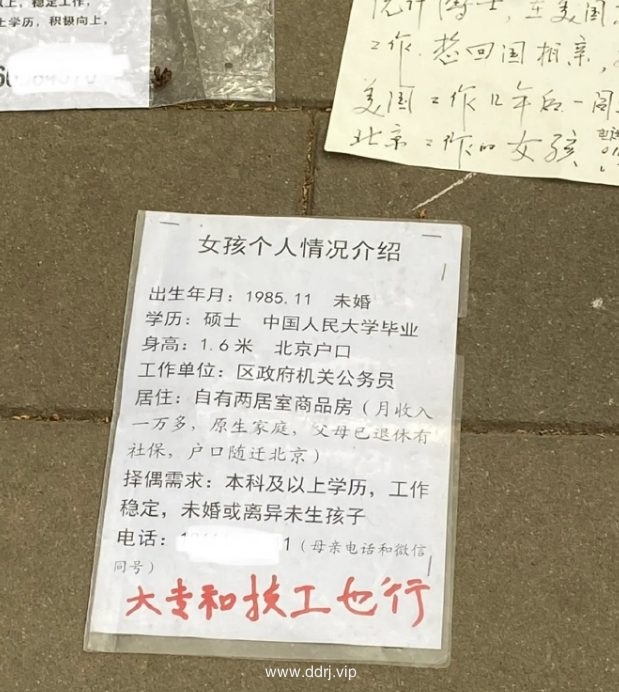 上，稳定工作，
上学历，积极向上，
统计博士，在美国
工作.想回国相亲，
美国工作几年后一同
北京工作的女孩
女孩个人情况介绍
出生年月：1985.11 未婚
学历：硕士 中国人民大学毕业
身高：1.6米 北京户口
工作单位：区政府机关公务员
居住：自有两居室商品房（月收入
一万多，原生家庭，父母已退休有
社保，户口随迁北京）
择偶需求：本科及以上学历，工作
稳定，未婚或离异未生孩子
电话：1（母亲电话和微信
同号）
大专和技工也行
www.ddrj.vip